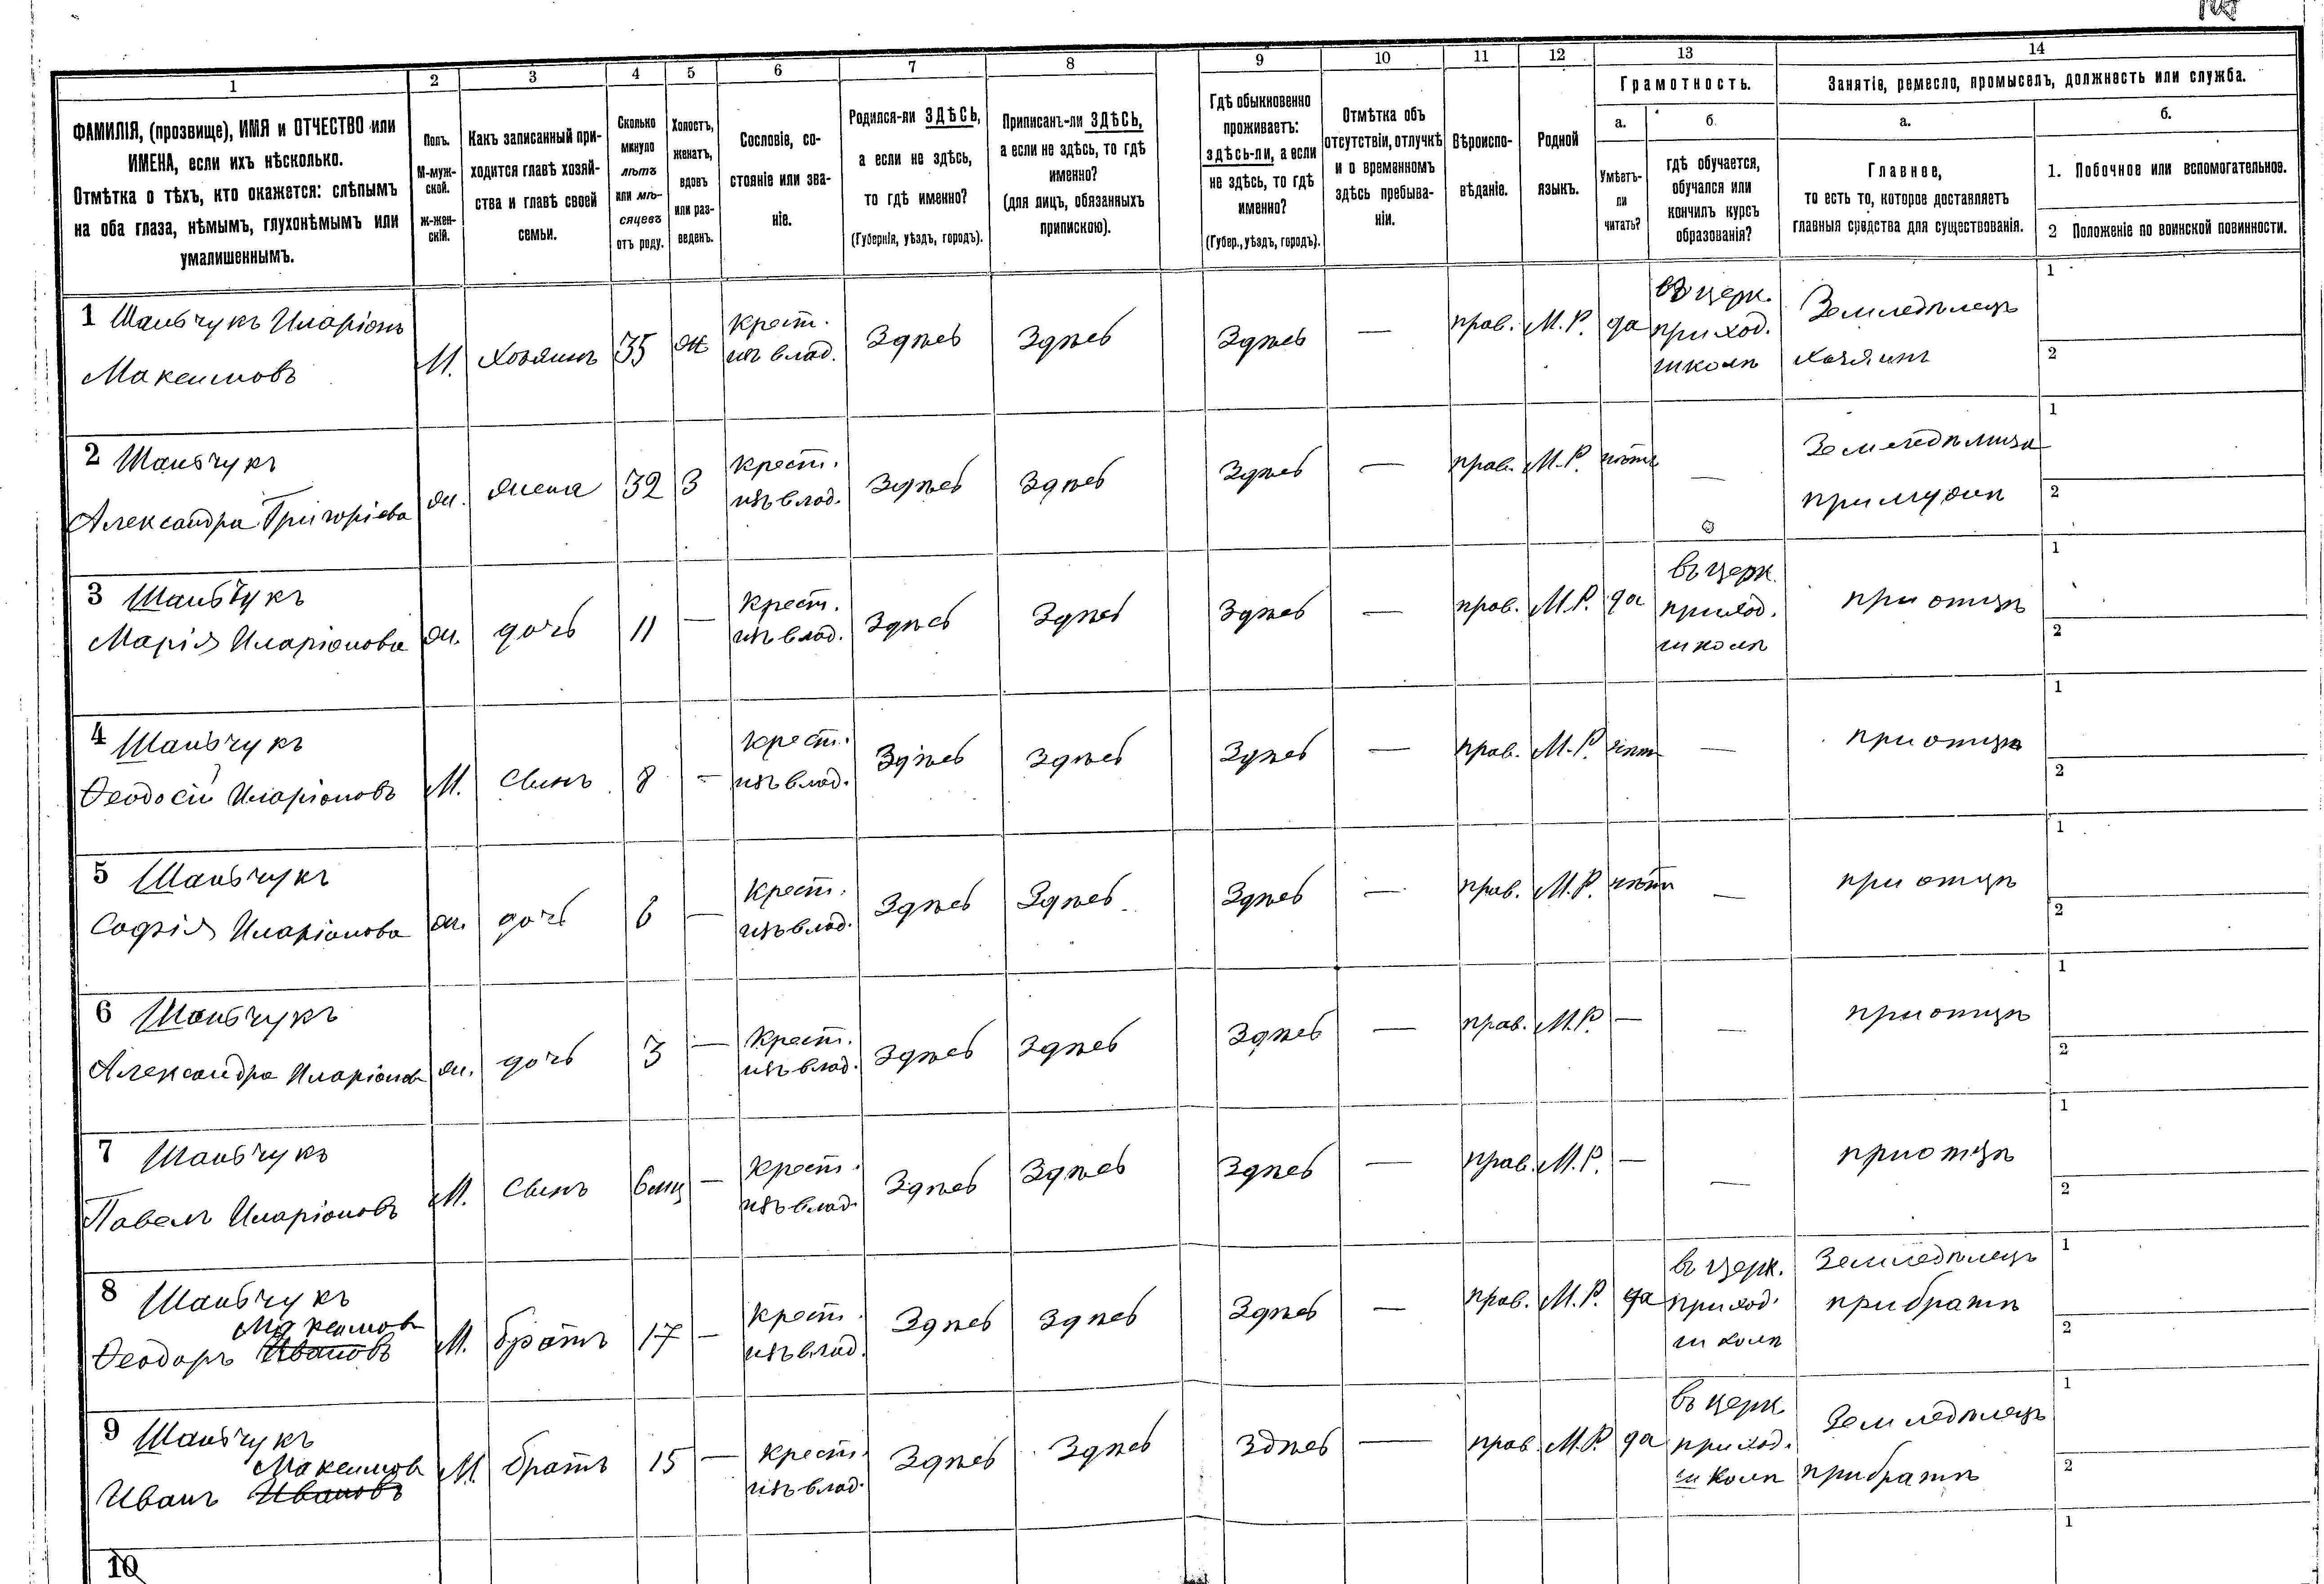 1 2 3 4 5 6 7 8 9 10 11 12 13 14
ФАМИЛІЯ, (прозвище), ИМЯ и ОТЧЕСТВО или
ИМЕНА, если ихъ нѣсколько.
Отмѣтка о тѣхъ, кто окажется: слѣпымъ
на оба глаза, нѣмымъ, глухонѣмымъ или
умалишеннымъ.
Полъ.
М-муж-
ской.
Ж-жен-
скій.
Какъ записанный при-
ходится главѣ хозяй-
ства и главѣ своей
семьи.
Сколько
минуло
лѣтъ
или мѣ-
сяцевъ
отъ роду.
Холостъ,
женатъ,
вдовъ
или раз-
веденъ.
Сословіе, со-
стояніе или зва-
ніе.
Родился-ли ЗДѢСЬ,
а если не здѣсь,
то гдѣ именно?
(Губернія, уѣздъ, городъ).
Приписанъ-ли ЗДѢСЬ,
а если не здѣсь, то гдѣ
именно?
(для лицъ, обязанныхъ
припискою).
Гдѣ обыкновенно
проживаетъ:
здѣсь-ли, а если
не здѣсь, то гдѣ
именно?
(Губер., уѣздъ, городъ).
Отмѣтка объ
отсутствіи, отлучкѣ
и о временномъ
здѣсь пребыва-
ніи.
Вѣроиспо-
вѣданіе.
Родной
языкъ.
Грамотность.
а.
Умѣетъ-
ли
читать?
б.
гдѣ обучается,
обучался или
кончилъ курсъ
образованія?
Занятіе, ремесло, промыселъ, должность или служба.
а.
Главное,
то есть то, которое доставляетъ
главныя средства для существованія.
б.
1. Побочное или вспомогательное.
2 Положеніе по воинской повинности.
1 Шаньчукъ Иларіонъ
Максимовъ
М. хозяинъ 35 ж
крест.
изъ влад.
Здѣсь Здѣсь Здѣсь — прав. М.Р. да
въ церк.
приход.
школѣ
Земледѣлецъ
хозяинъ
1
2
2 Шаньчукъ
Александра Григоріева
ж. жена 32 З
крест.
изъ влад.
Здѣсь Здѣсь Здѣсь — прав. М.Р. нѣтъ —
Земледѣлица
при мужѣ
1
2
3 Шаньчукъ
Марія Иларіонова
ж. дочь 11 —
крест.
изъ влад.
Здѣсь Здѣсь Здѣсь — прав. М.Р. да
въ церк.
приход.
школѣ
при отцѣ
1
2
4 Шаньчукъ
Ѳеодосій Иларіоновъ
М. сынъ 8 —
крест.
изъ влад.
Здѣсь Здѣсь Здѣсь — прав. М.Р. нѣтъ —
при отцѣ
1
2
5 Шаньчукъ
Софія Иларіонова
ж. дочь 6 —
крест.
изъ влад.
Здѣсь Здѣсь Здѣсь — прав. М.Р. нѣтъ —
при отцѣ
1
2
6 Шаньчукъ
Александра Иларіонов
ж. дочь 3 —
крест.
изъ влад.
Здѣсь Здѣсь Здѣсь — прав. М.Р. — —
при отцѣ
1
2
7 Шаньчукъ
Павелъ Иларіоновъ
М. сынъ 6 мц —
крест.
изъ влад.
Здѣсь Здѣсь Здѣсь — прав. М.Р. — —
при отцѣ
1
2
8 Шаньчукъ
Максимов
Ѳеодоръ Ивановъ
М. братъ 17 —
крест.
изъ влад.
Здѣсь Здѣсь Здѣсь — прав. М.Р. да
въ церк.
приход.
школѣ
Земледѣлецъ
при братѣ
1
2
9 Шаньчукъ
Максимов
Иванъ Ивановъ
М. братъ 15 —
крест.
изъ влад.
Здѣсь Здѣсь Здѣсь — прав. М.Р. да
въ церк
приход.
школѣ
Земледѣлецъ
при братѣ
1
2
10
1